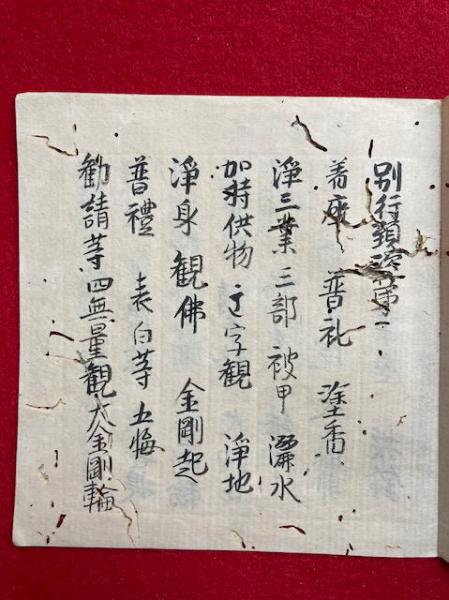 別行類誌第一
着座 普礼 塗香
淨三業 三部 被甲 灑水
加持供物 𑖨字觀 淨地
淨身 觀佛 金剛起
普禮 表白等 五悔
勸請等 四無量觀 大金剛輪